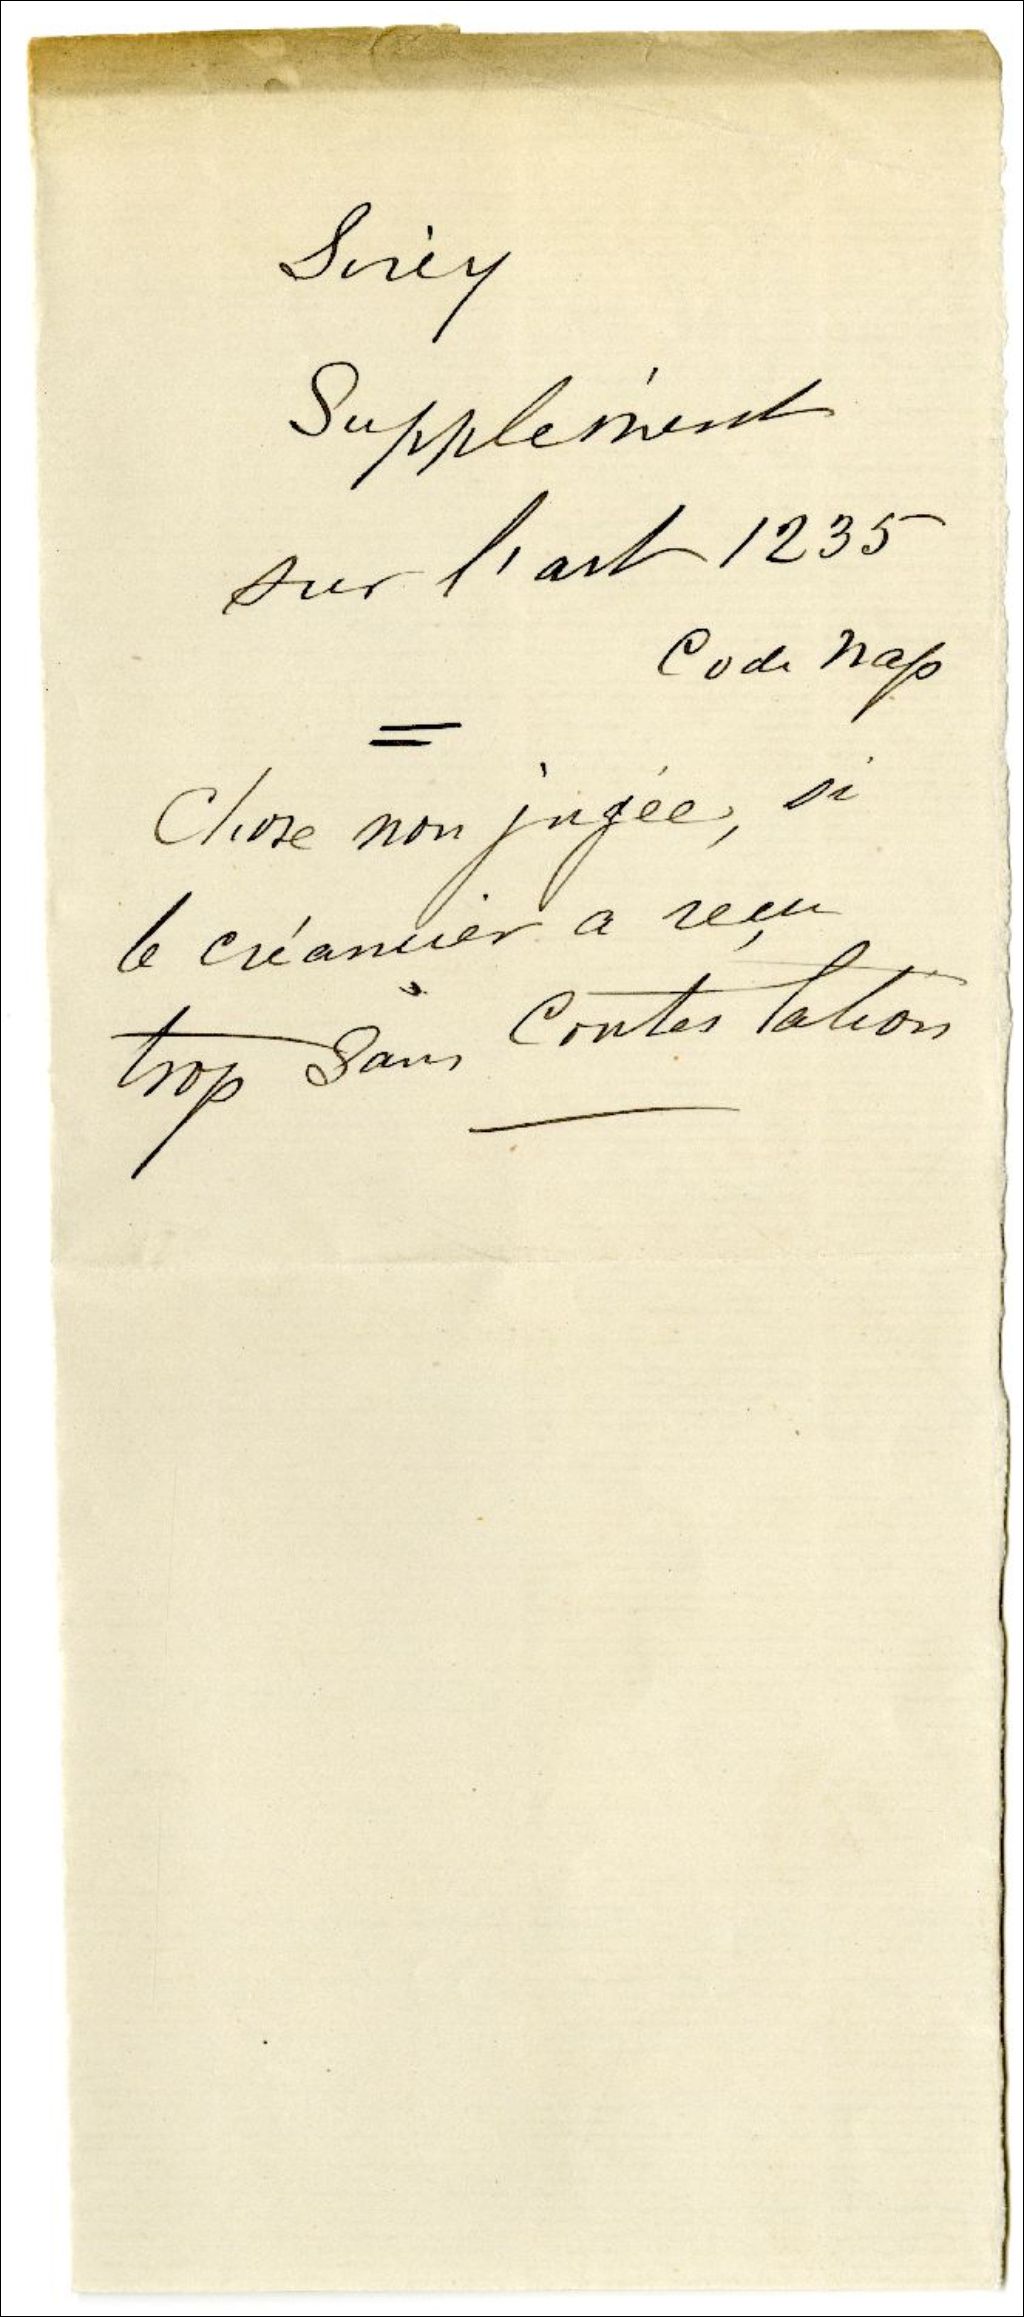 Sirey
Supplément
sur l'art 1235
Code Nap
Chose non jugée, si
le créancier a reçu
trop sans Contestation